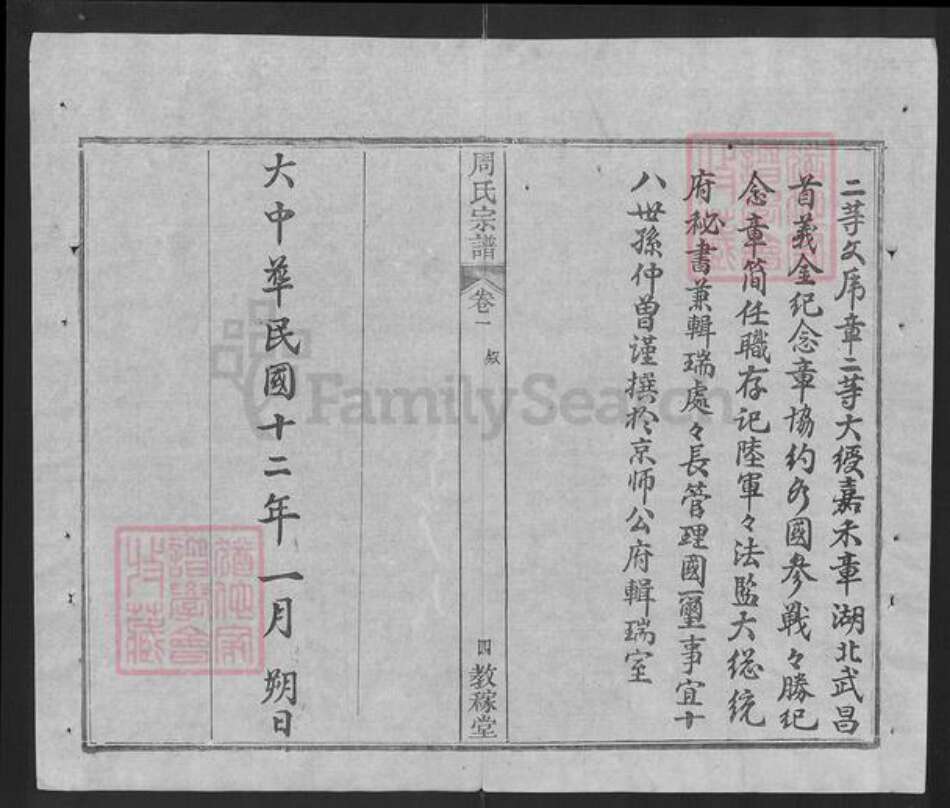 二等文虎章二等大綬嘉禾章湖北武昌
首義金紀念章協約各國參戰々勝紀
念章簡任職存記陸軍々法監大總統
府秘書兼輯瑞處々長管理國璽事宜十
八世孫仲曾謹撰於京师公府輯瑞室
周氏宗譜
卷一
敘
四
教稼堂
大中華民國十二年一月朔日
FamilySearch